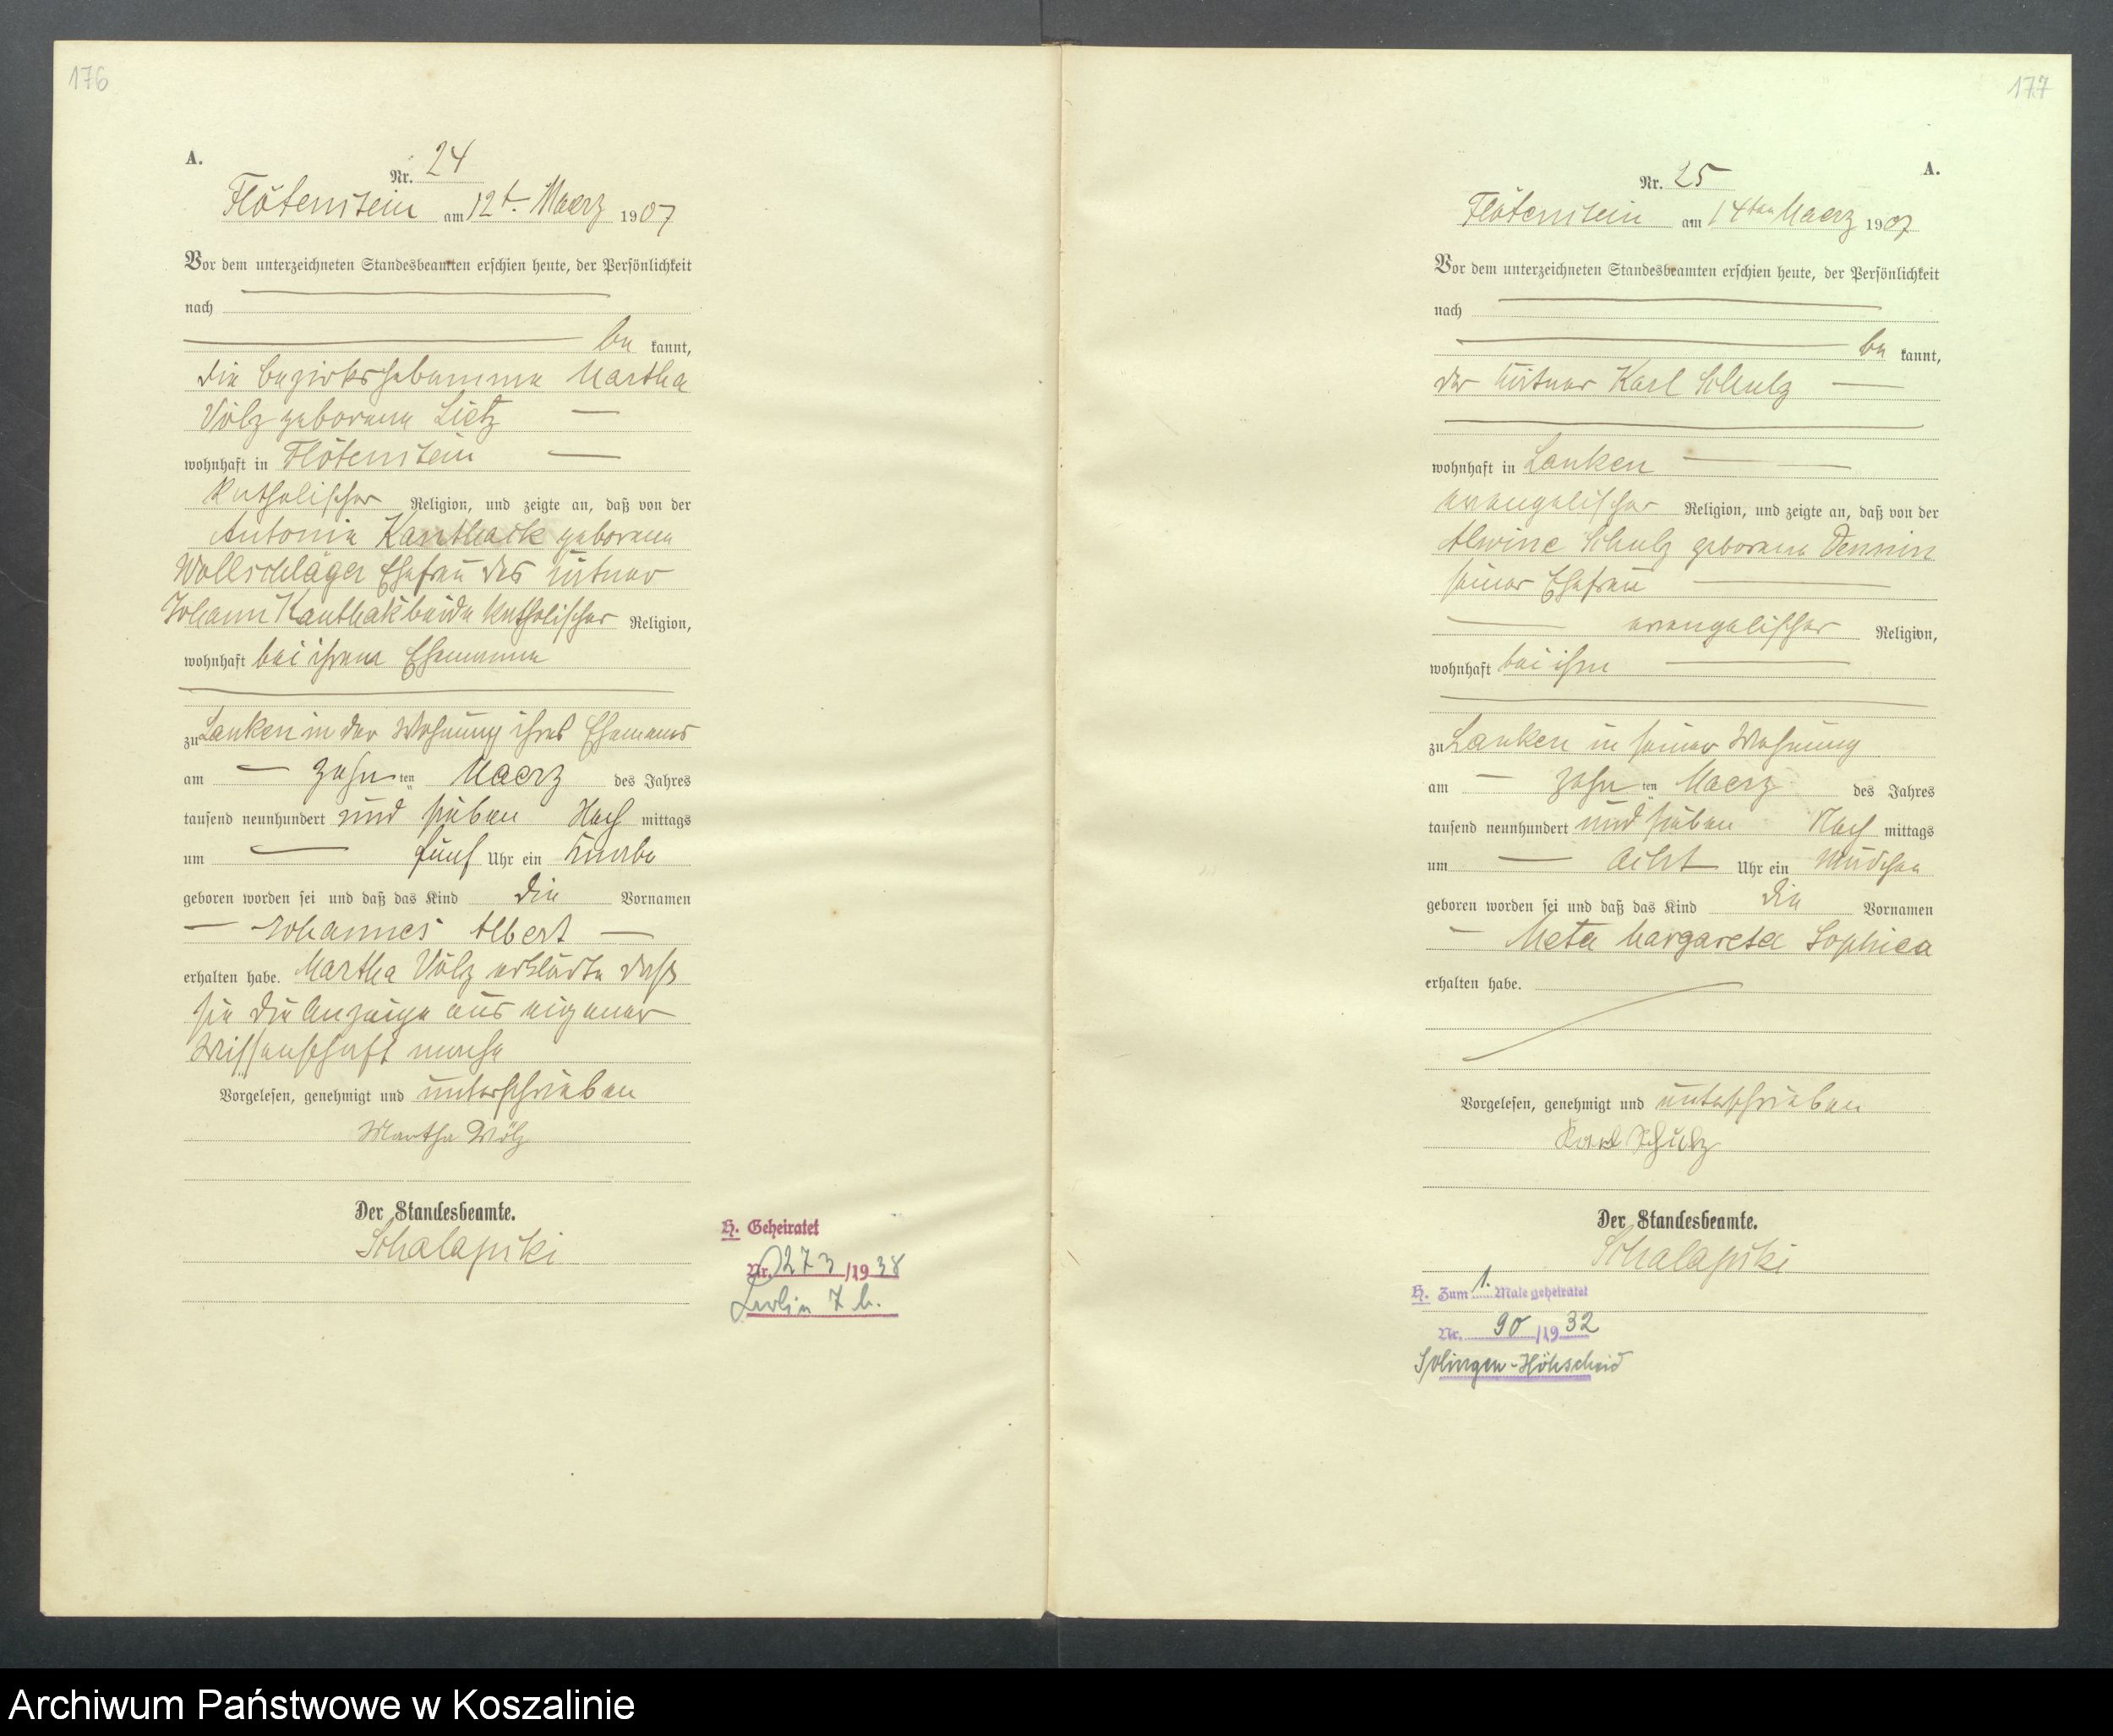 176
A.
Nr. 24
Flötenstein am 12t. Maerz 1907
Vor dem unterzeichneten Standesbeamten erschien heute, der Persönlichkeit
nach
be kannt,
die Bezirkshebamme Martha
Völz geborene Lietz
wohnhaft in Flötenstein
katholischer Religion, und zeigte an, daß von der
Antonie Kanthack geborene
Wollschläger Ehefrau des
Johann Kanthak beide katholischer Religion,
wohnhaft bei ihrem Ehemanne
zu Lanken in der Wohnung ihres Ehemanns
am zehn ten Maerz des Jahres
tausend neunhundert und sieben Nach mittags
um fünf Uhr ein Knabe
geboren worden sei und daß das Kind die Vornamen
Johannes Albert
erhalten habe. Martha Völz erklärte daß
sie die Anzeige aus eigener
Wissenschaft mache
Vorgelesen, genehmigt und unterschrieben
Martha Völz
Der Standesbeamte.
Schalapski
H. Geheiratet
Nr. 273/1938
Berlin 7 b.
177
A.
Nr. 25
Flötenstein am 14ten Maerz 1907
Vor dem unterzeichneten Standesbeamten erschien heute, der Persönlichkeit
nach
be kannt,
der Karl Schulz
wohnhaft in Lanken
evangelischer Religion, und zeigte an, daß von der
Alwine Schulz geborene Dennin
seiner Ehefrau
evangelischer Religion,
wohnhaft bei ihm
zu Lanken in seiner Wohnung
am zehn ten Maerz des Jahres
tausend neunhundert und sieben Nach mittags
um acht Uhr ein Mädchen
geboren worden sei und daß das Kind die Vornamen
Meta Margareta Sophiea
erhalten habe.
Vorgelesen, genehmigt und unterschrieben
Karl Schulz
Der Standesbeamte.
Schalapski
H. Zum 1. Male geheiratet
Nr. 90/1932
Solingen-Höhscheid
Archiwum Państwowe w Koszalinie